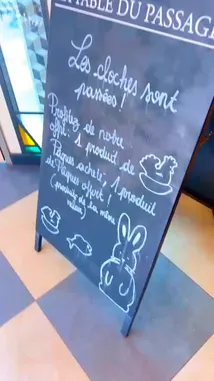 LA TABLE DU PASSAGE
Les cloches sont
passées !
Profitez de notre
offre : 1 produit de
Pâques acheté, 1 produit
de Pâques offert !
(produits de la même
valeur)